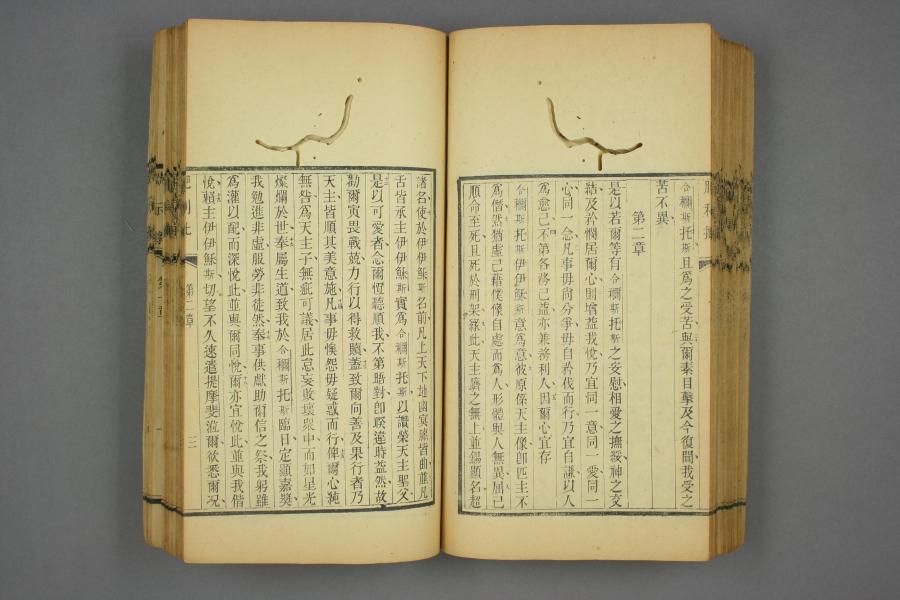 合彌斯托斯且為之受苦與爾素目擊及今復聞我受之
苦不異
第二章
是以若爾等有合彌斯托斯之安慰相愛之撫綏神之交
結及矜憫居爾心則增益我悅乃宜同一意同一愛同一
心同一念凡事毋尚分爭毋自矜伐而行乃宜自謙以人
為愈己不第各務己益亦兼濟利人因爾心宜存
合彌斯托斯伊伊穌斯意為意彼原係天主像卽匹主不
為僭然猶虛己藉僕像自處而為人形體與人無異屈己
順命至死且死於刑架緣此天主躋之無上並錫顯名超
諸名使於伊伊穌斯名前凡上天下地幽冥膝皆曲並凡
舌皆承主伊伊穌斯實為合彌斯托斯以讚榮天主聖父
是以可愛者念爾恆聽順我不第晤對卽睽違時益然故
勸爾寅畏戰兢力行以得救贖蓋致爾向善及果行者乃
天主皆順其美意施凡事毋怨毋疑惑而行俾爾心純
無咎為天主子無疵可議居此怠妄敗壞眾中而如星光
燦爛於世奉屬生道致我於合彌斯托斯臨日定顯嘉獎
我勉進非虛服勞非徒然奉事供獻助爾信之祭我躬雖
為灌以配而深悅此並與爾同悅爾亦宜悅此並與我偕
悅賴主伊伊穌斯切望不久速遣提摩斐涖爾欲悉爾況
第二章
三